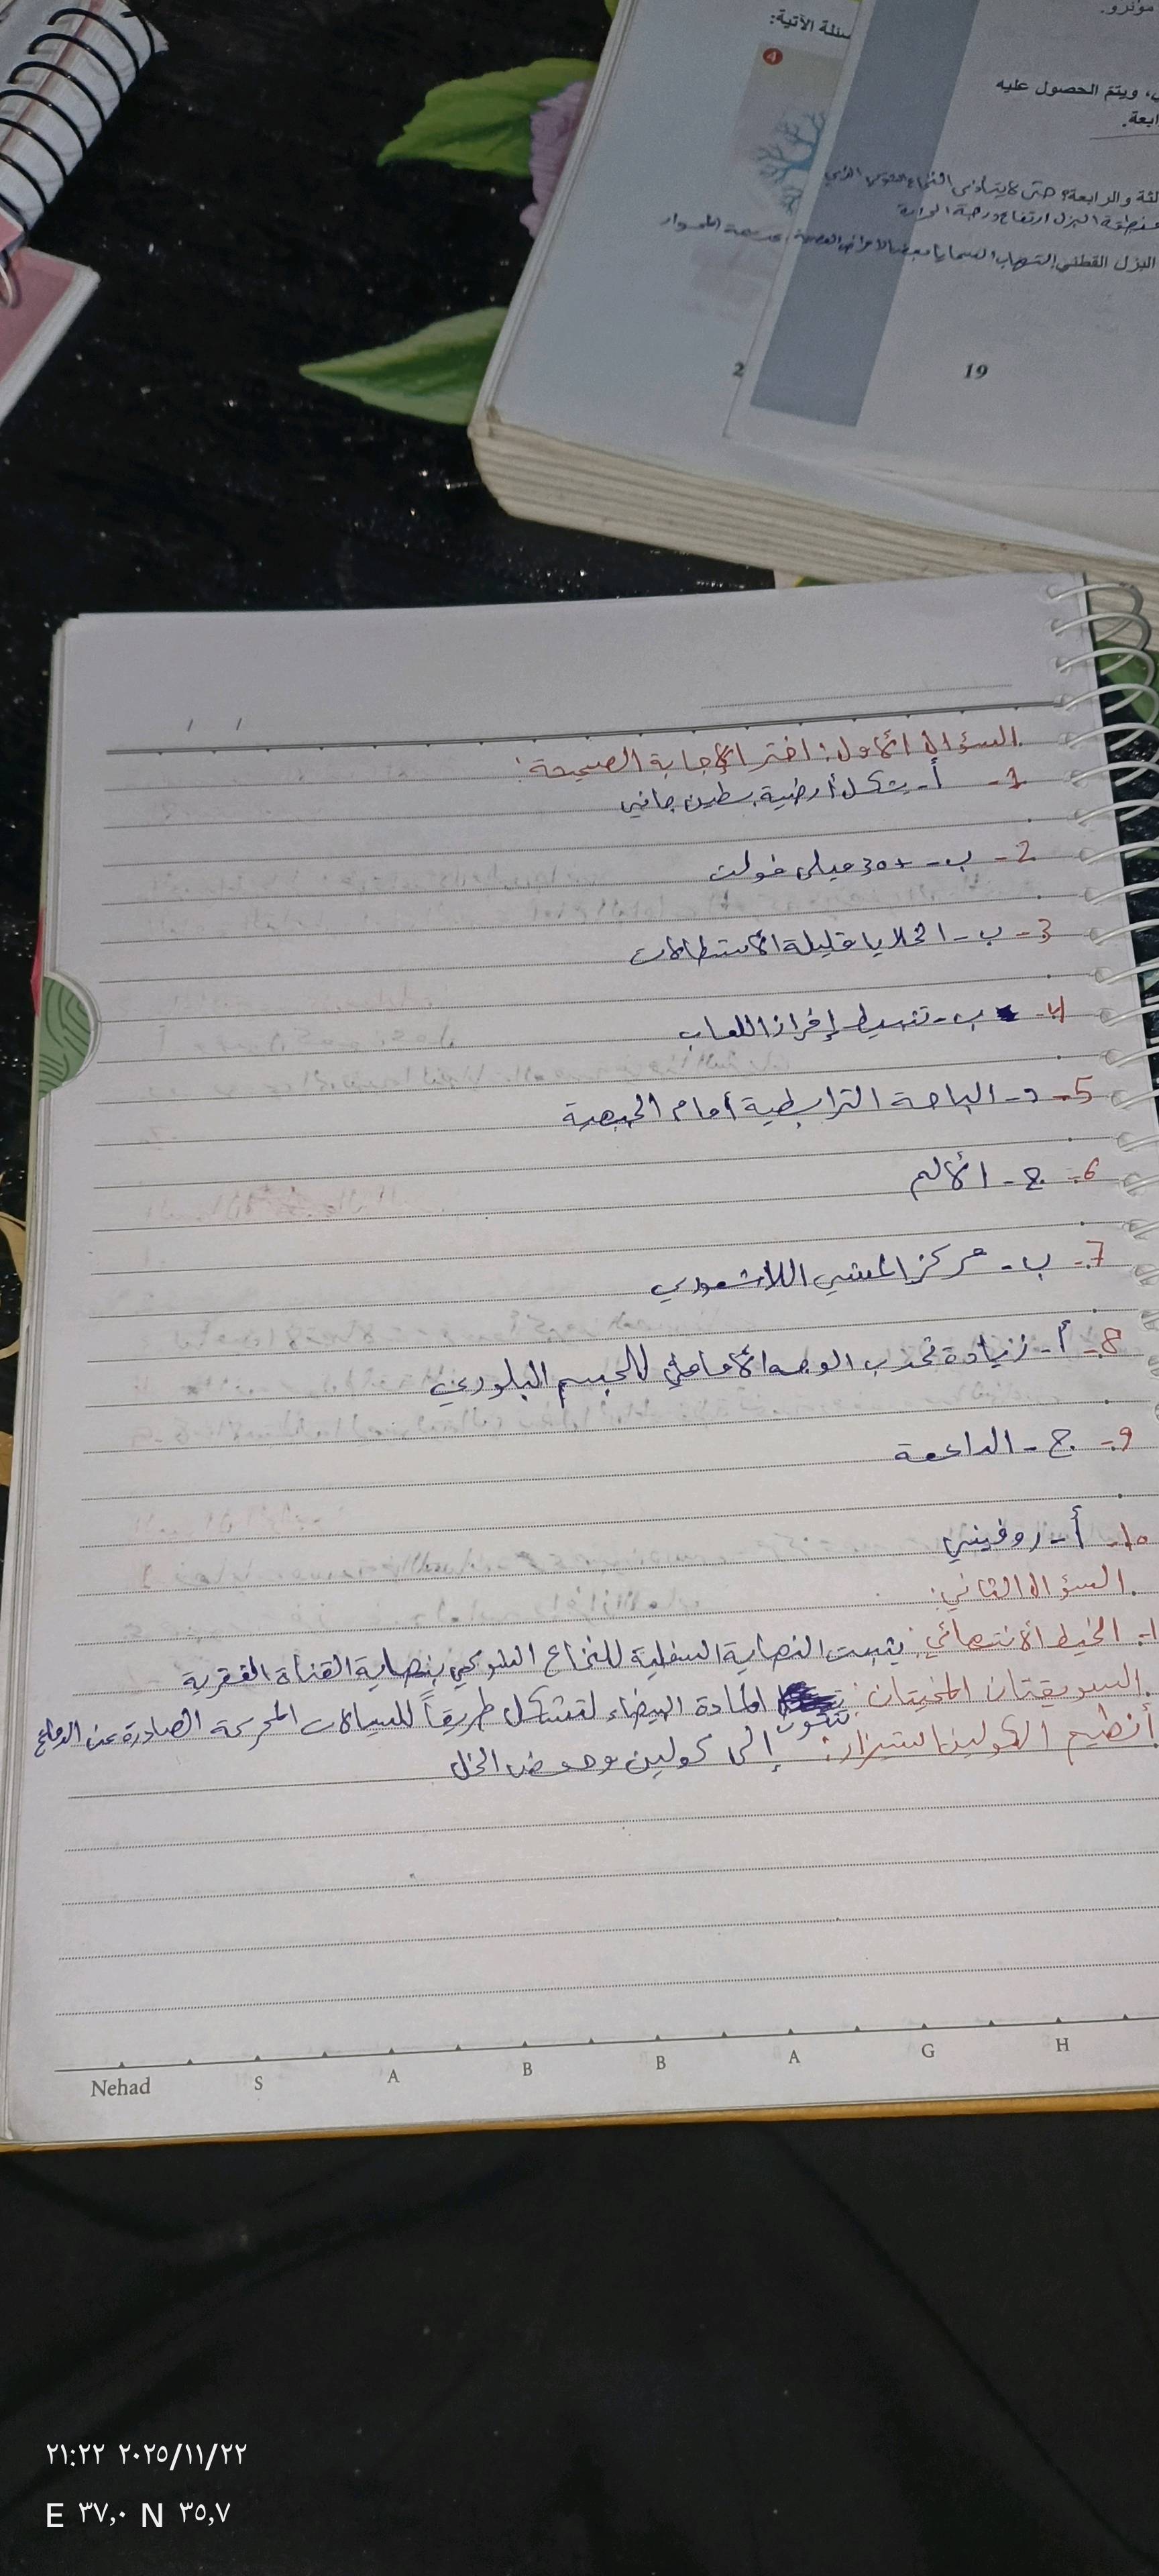 مؤنرو.
سئلة الآتية:
4
ي، ويتم الحصول عليه
ابعة.
لثة والرابعة؟ حتى لا يتأذى النخاع الشوكي الذي
منطقة البزل ارتفاع درجة الحرارة
البزل القطني التهاب السحايا بعض الأمراض العصبية
2
19
السؤال الأول: اختر الإجابة الصحيحة:
1- أ- يشكل أرضية بطين جانبي
2- ب- +30 ميلي فولت
3- ب- الخلايا قليلة الاستطالات
4- ب- تنشيط إفراز اللعاب
5- د- الباحة الترابطية أمام الجبهية
6- ج- الألم
7- ب- مركز المشي اللاشعوري
8- أ- زيادة تحدب الوجه الأمامي للجسم البلوري
9- ج- الداعمة
10- أ- روفيني
السؤال الثاني:
1- الخيط الانتهائي: يثبت النهاية السفلية للنخاع الشوكي بنهاية القناة الفقرية
السويقتان المخيتان: تتكون المادة البيضاء لتشكل طريقاً للسيالات المحركة الصادرة عن الدماغ
أنظيم الكولين استيراز: إلى كولين وحمض الخل
Nehad S A B B A G H
٢٠٢٥/١١/٢٢ ٢١:٢٢
E ٣٧,٠ N ٣٥,٧